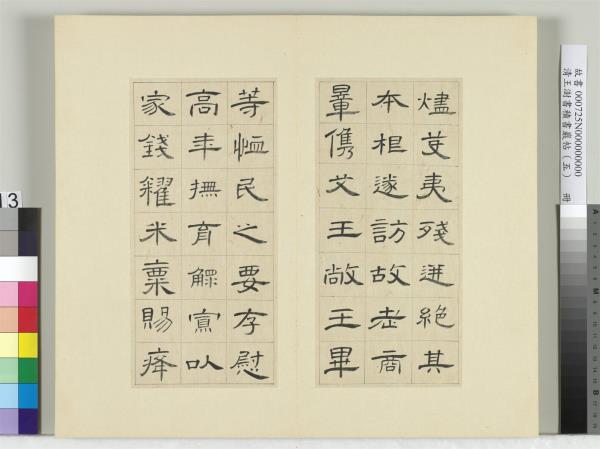 燼芟夷殘迸絕其
本根遂訪故老商
量儁艾王敞王畢
等恤民之要存慰
高年撫育鰥寡以
家錢糴米粟賜癃
故書 000725N000000000 冊
清王澍書積書巖帖（五）
13
A
M
B